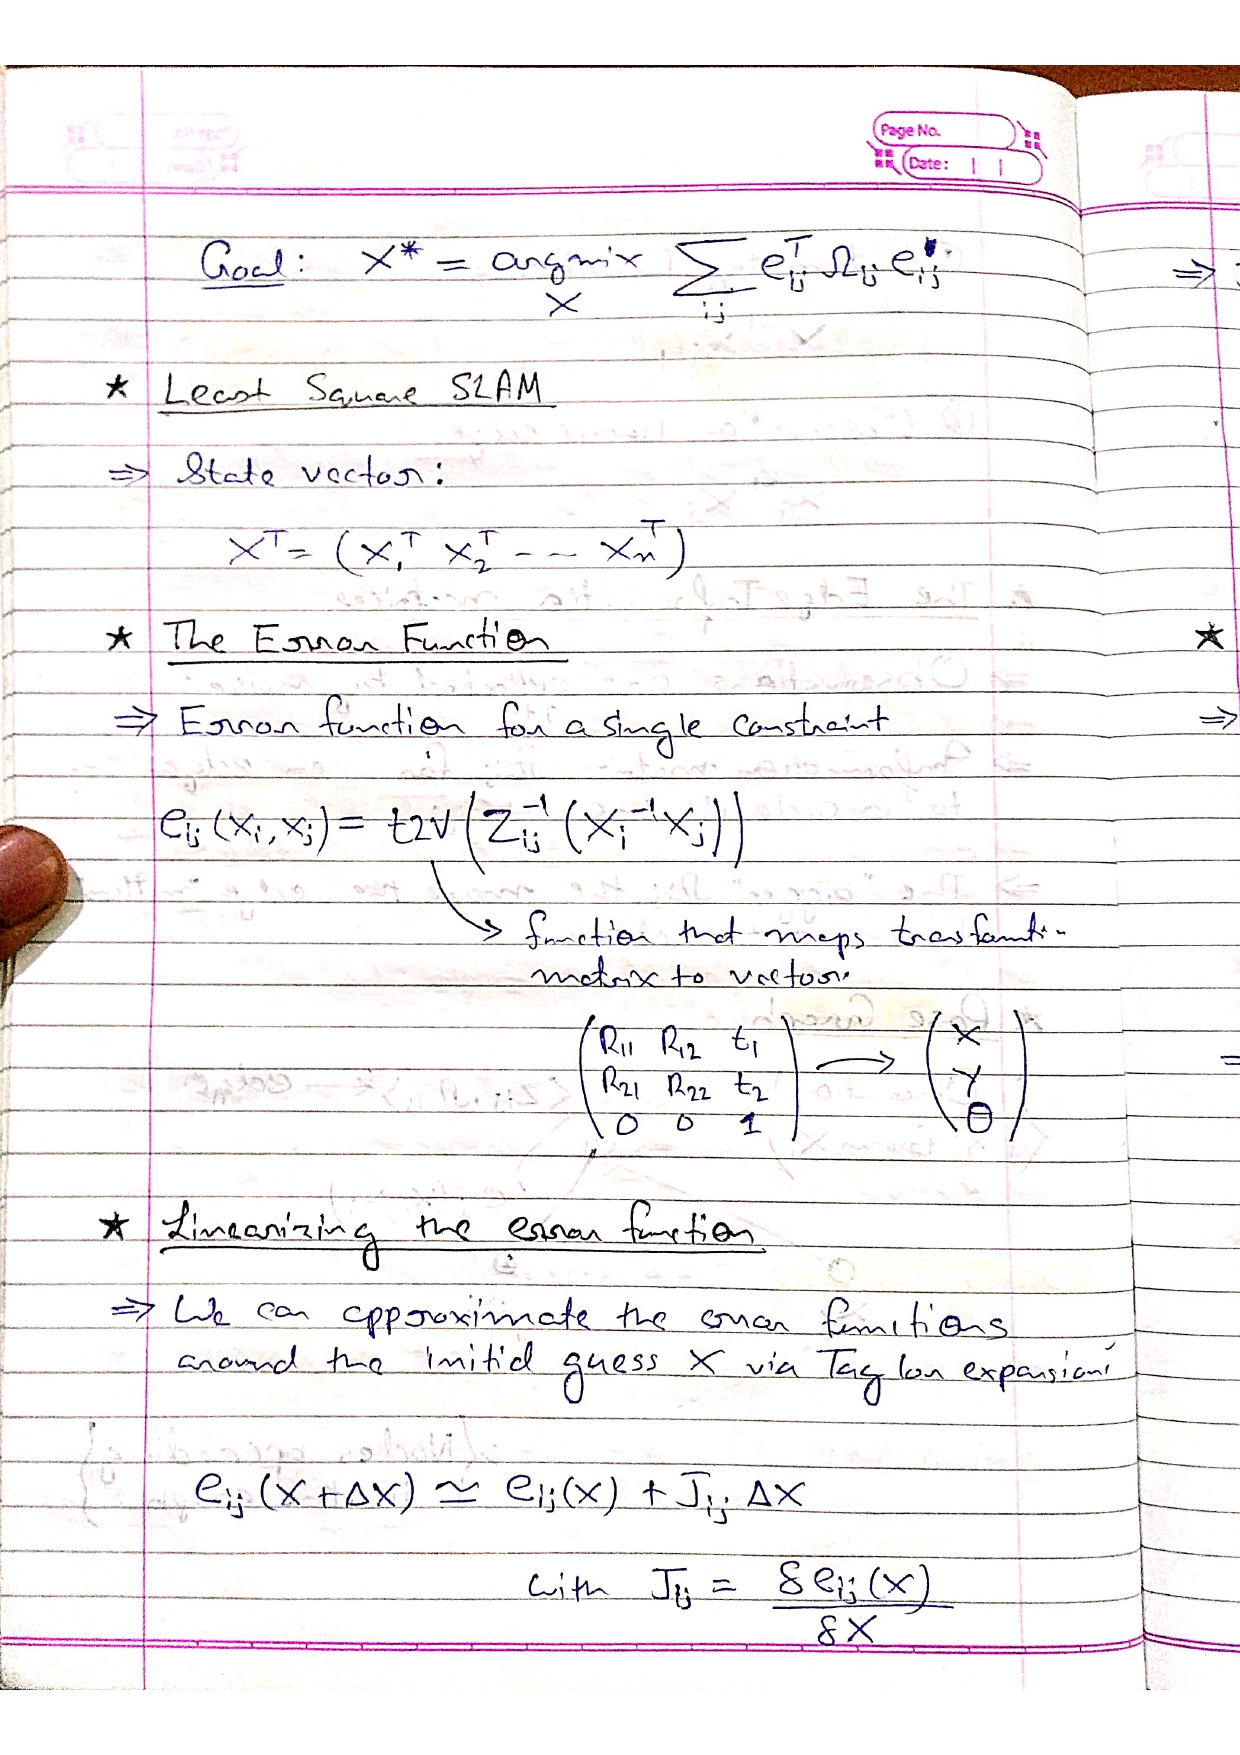 Page No.
Date: | |
Goal: X* = argmin Σ eᵢⱼᵀ Ωᵢⱼ eᵢⱼ
X ij
★ Least Square SLAM
⇒ State vector:
Xᵀ = (X₁ᵀ X₂ᵀ - - Xₙᵀ)
★ The Error Function
⇒ Error function for a single constraint
eᵢⱼ (Xᵢ, Xⱼ) = t2v (Zᵢⱼ⁻¹ (Xᵢ⁻¹Xⱼ))
function that maps
matrix to vector.
R₁₁ R₁₂ t₁ X
R₂₁ R₂₂ t₂ → Y
0 0 1 θ
★ Linearizing the error function
⇒ We can approximate the error functions
around the initial guess X via Taylor expansion
eᵢⱼ (X + ΔX) ≃ eᵢⱼ(X) + Jᵢⱼ ΔX
with Jᵢⱼ = δeᵢⱼ(X)
δX